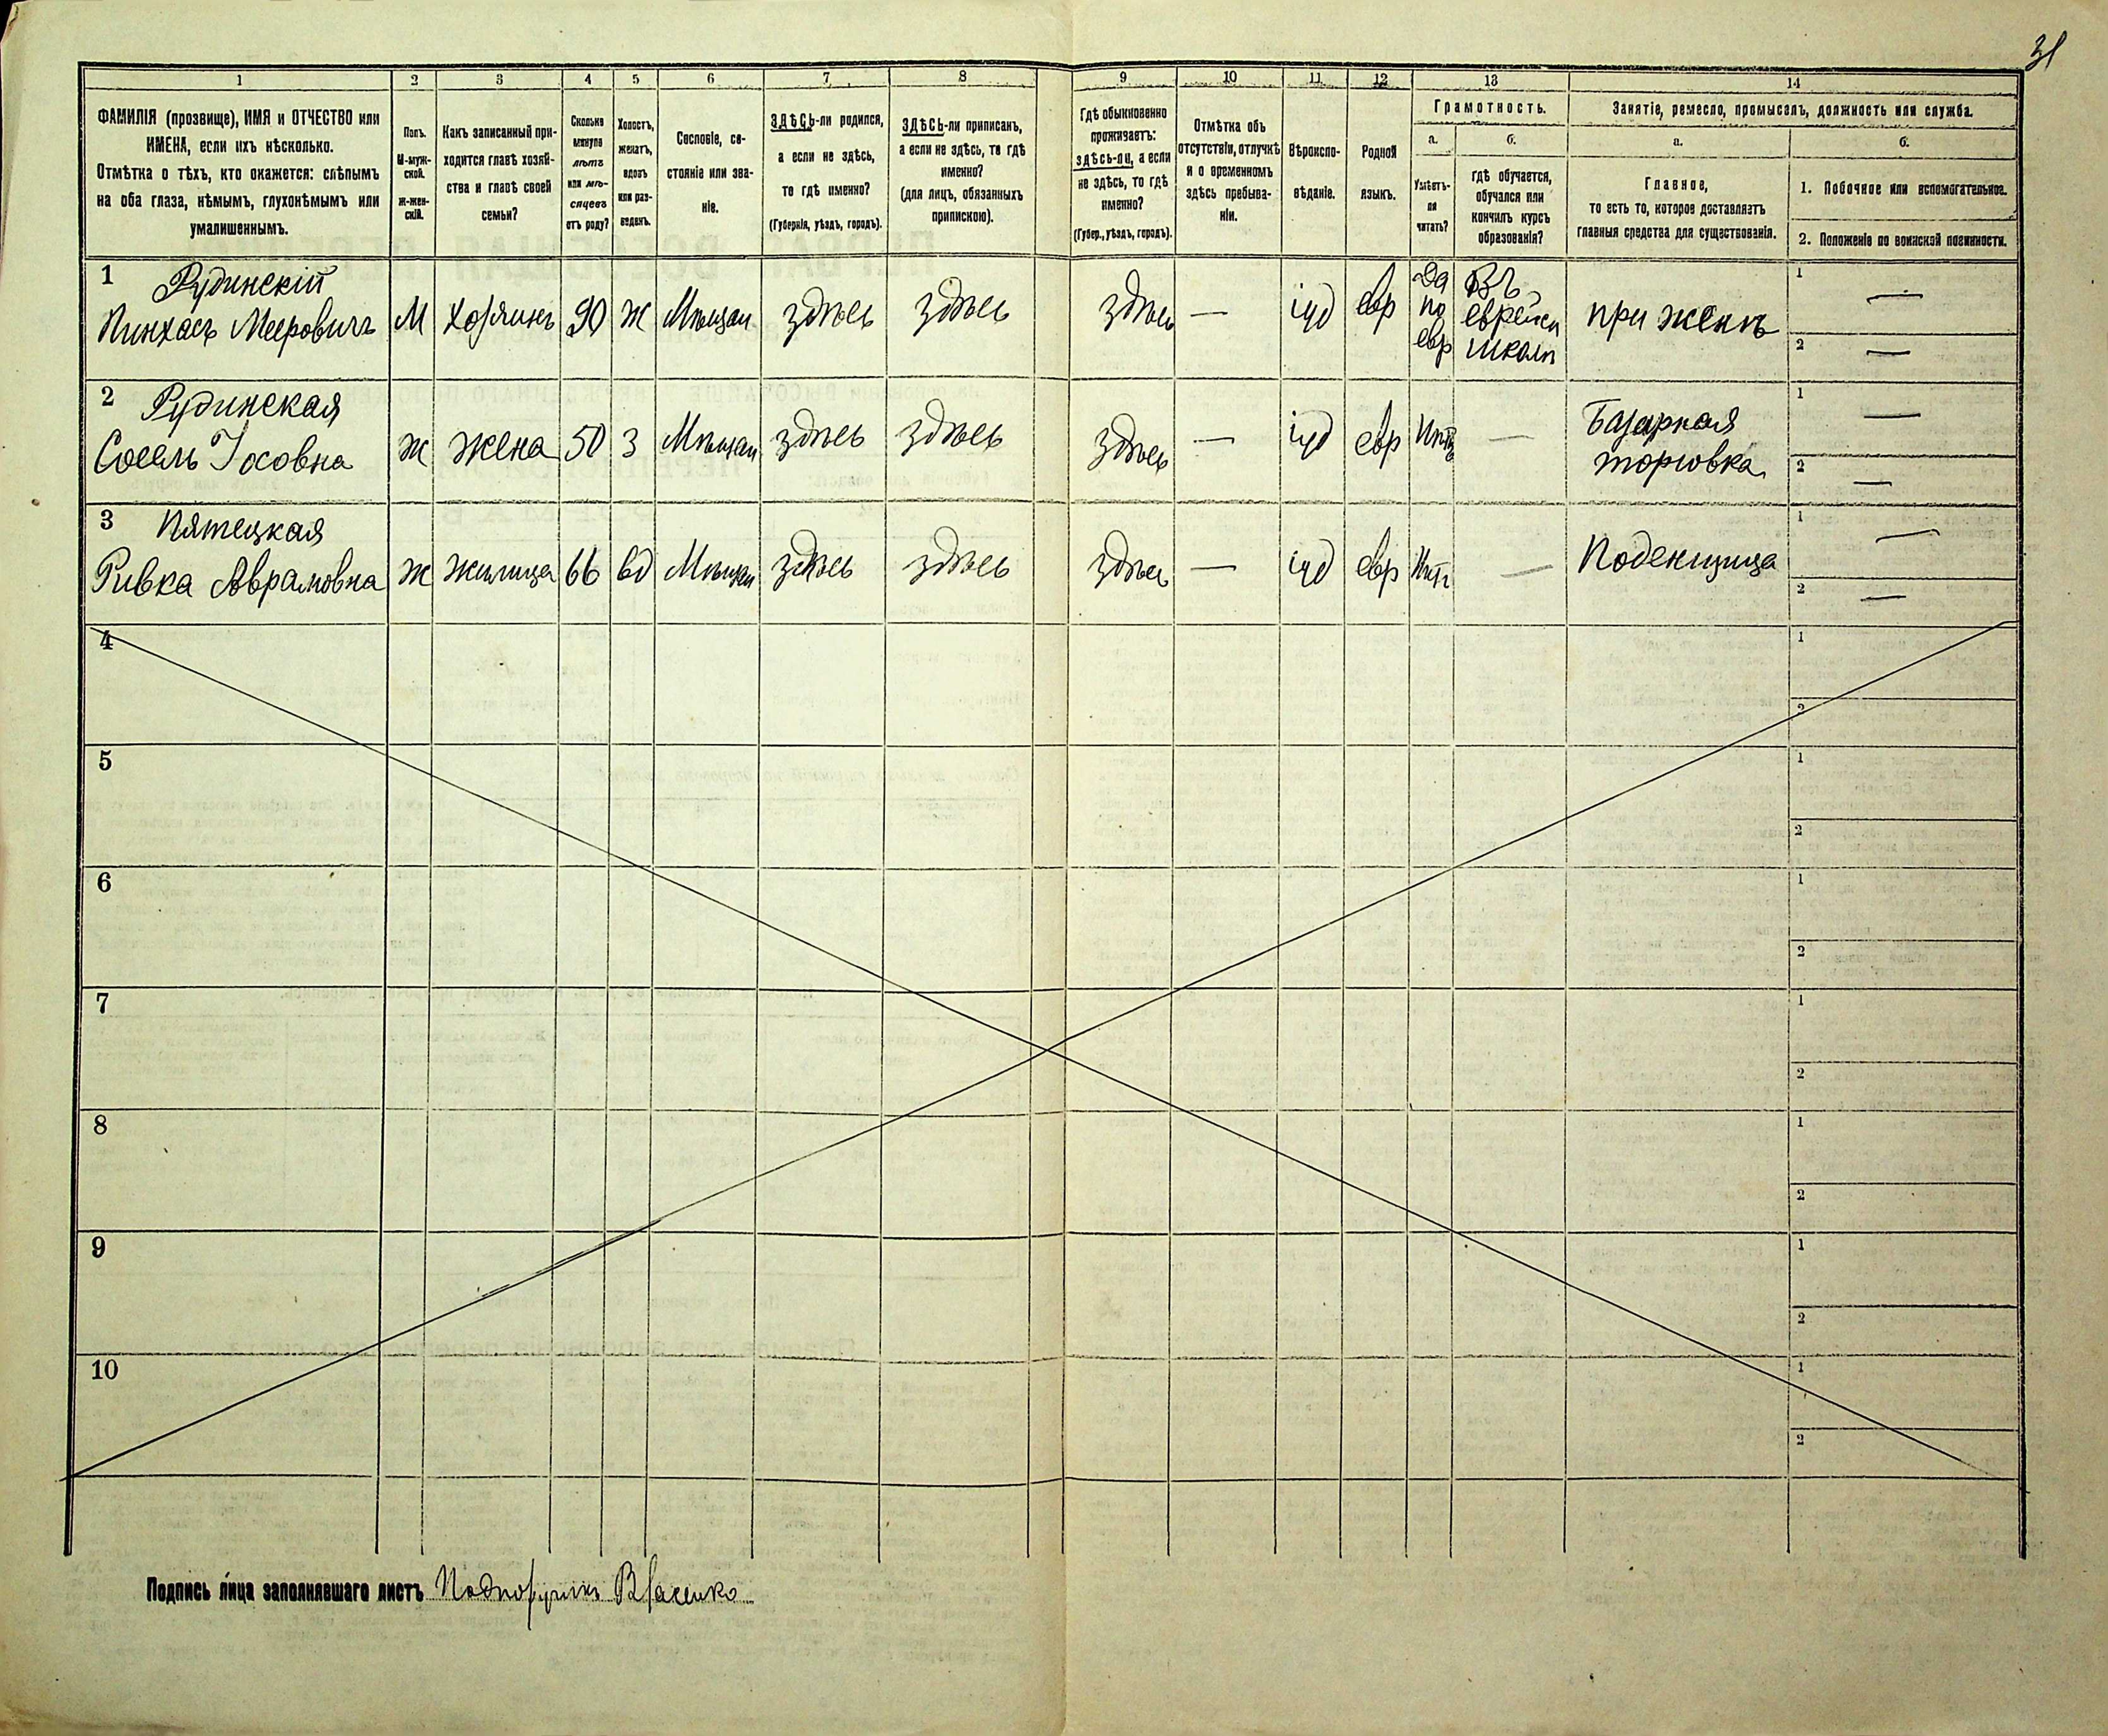 31
1 2 3 4 5 6 7 8 9 10 11 12 13 14
ФАМИЛІЯ (прозвище), ИМЯ и ОТЧЕСТВО или
ИМЕНА, если ихъ нѣсколько.
Отмѣтка о тѣхъ, кто окажется: слѣпымъ
на оба глаза, нѣмымъ, глухонѣмымъ или
умалишеннымъ.
Полъ.
М-муж-
ской.
ж-жен-
скій.
Какъ записанный при-
ходится главѣ хозяй-
ства и главѣ своей
семьи?
Сколько
минуло
лѣтъ
или мѣ-
сяцевъ
отъ роду?
Холостъ,
женатъ,
вдовъ
или раз-
веденъ.
Сословіе, со-
стояніе или зва-
ніе.
ЗДѢСЬ-ли родился,
а если не здѣсь,
то гдѣ именно?
(Губернія, уѣздъ, городъ).
ЗДѢСЬ-ли приписанъ,
а если не здѣсь, то гдѣ
именно?
(для лицъ, обязанныхъ
припискою).
Гдѣ обыкновенно
проживаетъ:
здѣсь-ли, а если
не здѣсь, то гдѣ
именно?
(Губер., уѣздъ, городъ).
Отмѣтка объ
отсутствіи, отлучкѣ
и о временномъ
здѣсь пребыва-
ніи.
Вѣроиспо-
вѣданіе.
Родной
языкъ.
Грамотность.
а.
Умѣетъ-
ли
читать?
б.
гдѣ обучается,
обучался или
кончилъ курсъ
образованія?
Занятіе, ремесло, промыселъ, должность или служба.
а.
Главное,
то есть то, которое доставляетъ
главныя средства для существованія.
б.
1. Побочное или вспомогательное.
2. Положеніе по воинской повинности.
1 Рудинскій
Пинхасъ Мееровичъ М Хозяинъ 90 ж Мѣщан здѣсь здѣсь здѣсь — іуд евр
да
по
евр
Въ
еврейск
школѣ
при женѣ
1 —
2 —
2 Рудинская
Сосель Іосовна ж жена 50 з Мѣщан здѣсь здѣсь здѣсь — іуд евр Нѣтъ —
Базарная
торговка
1 —
2 —
3 Пятецкая
Ривка Аврамовна ж жилица 66 вд Мѣщан здѣсь здѣсь здѣсь — іуд евр Нѣтъ — Поденщица
1 —
2 —
4
1
2
5
1
2
6
1
2
7
1
2
8
1
2
9
1
2
10
1
2
Подпись лица заполнявшаго листъ